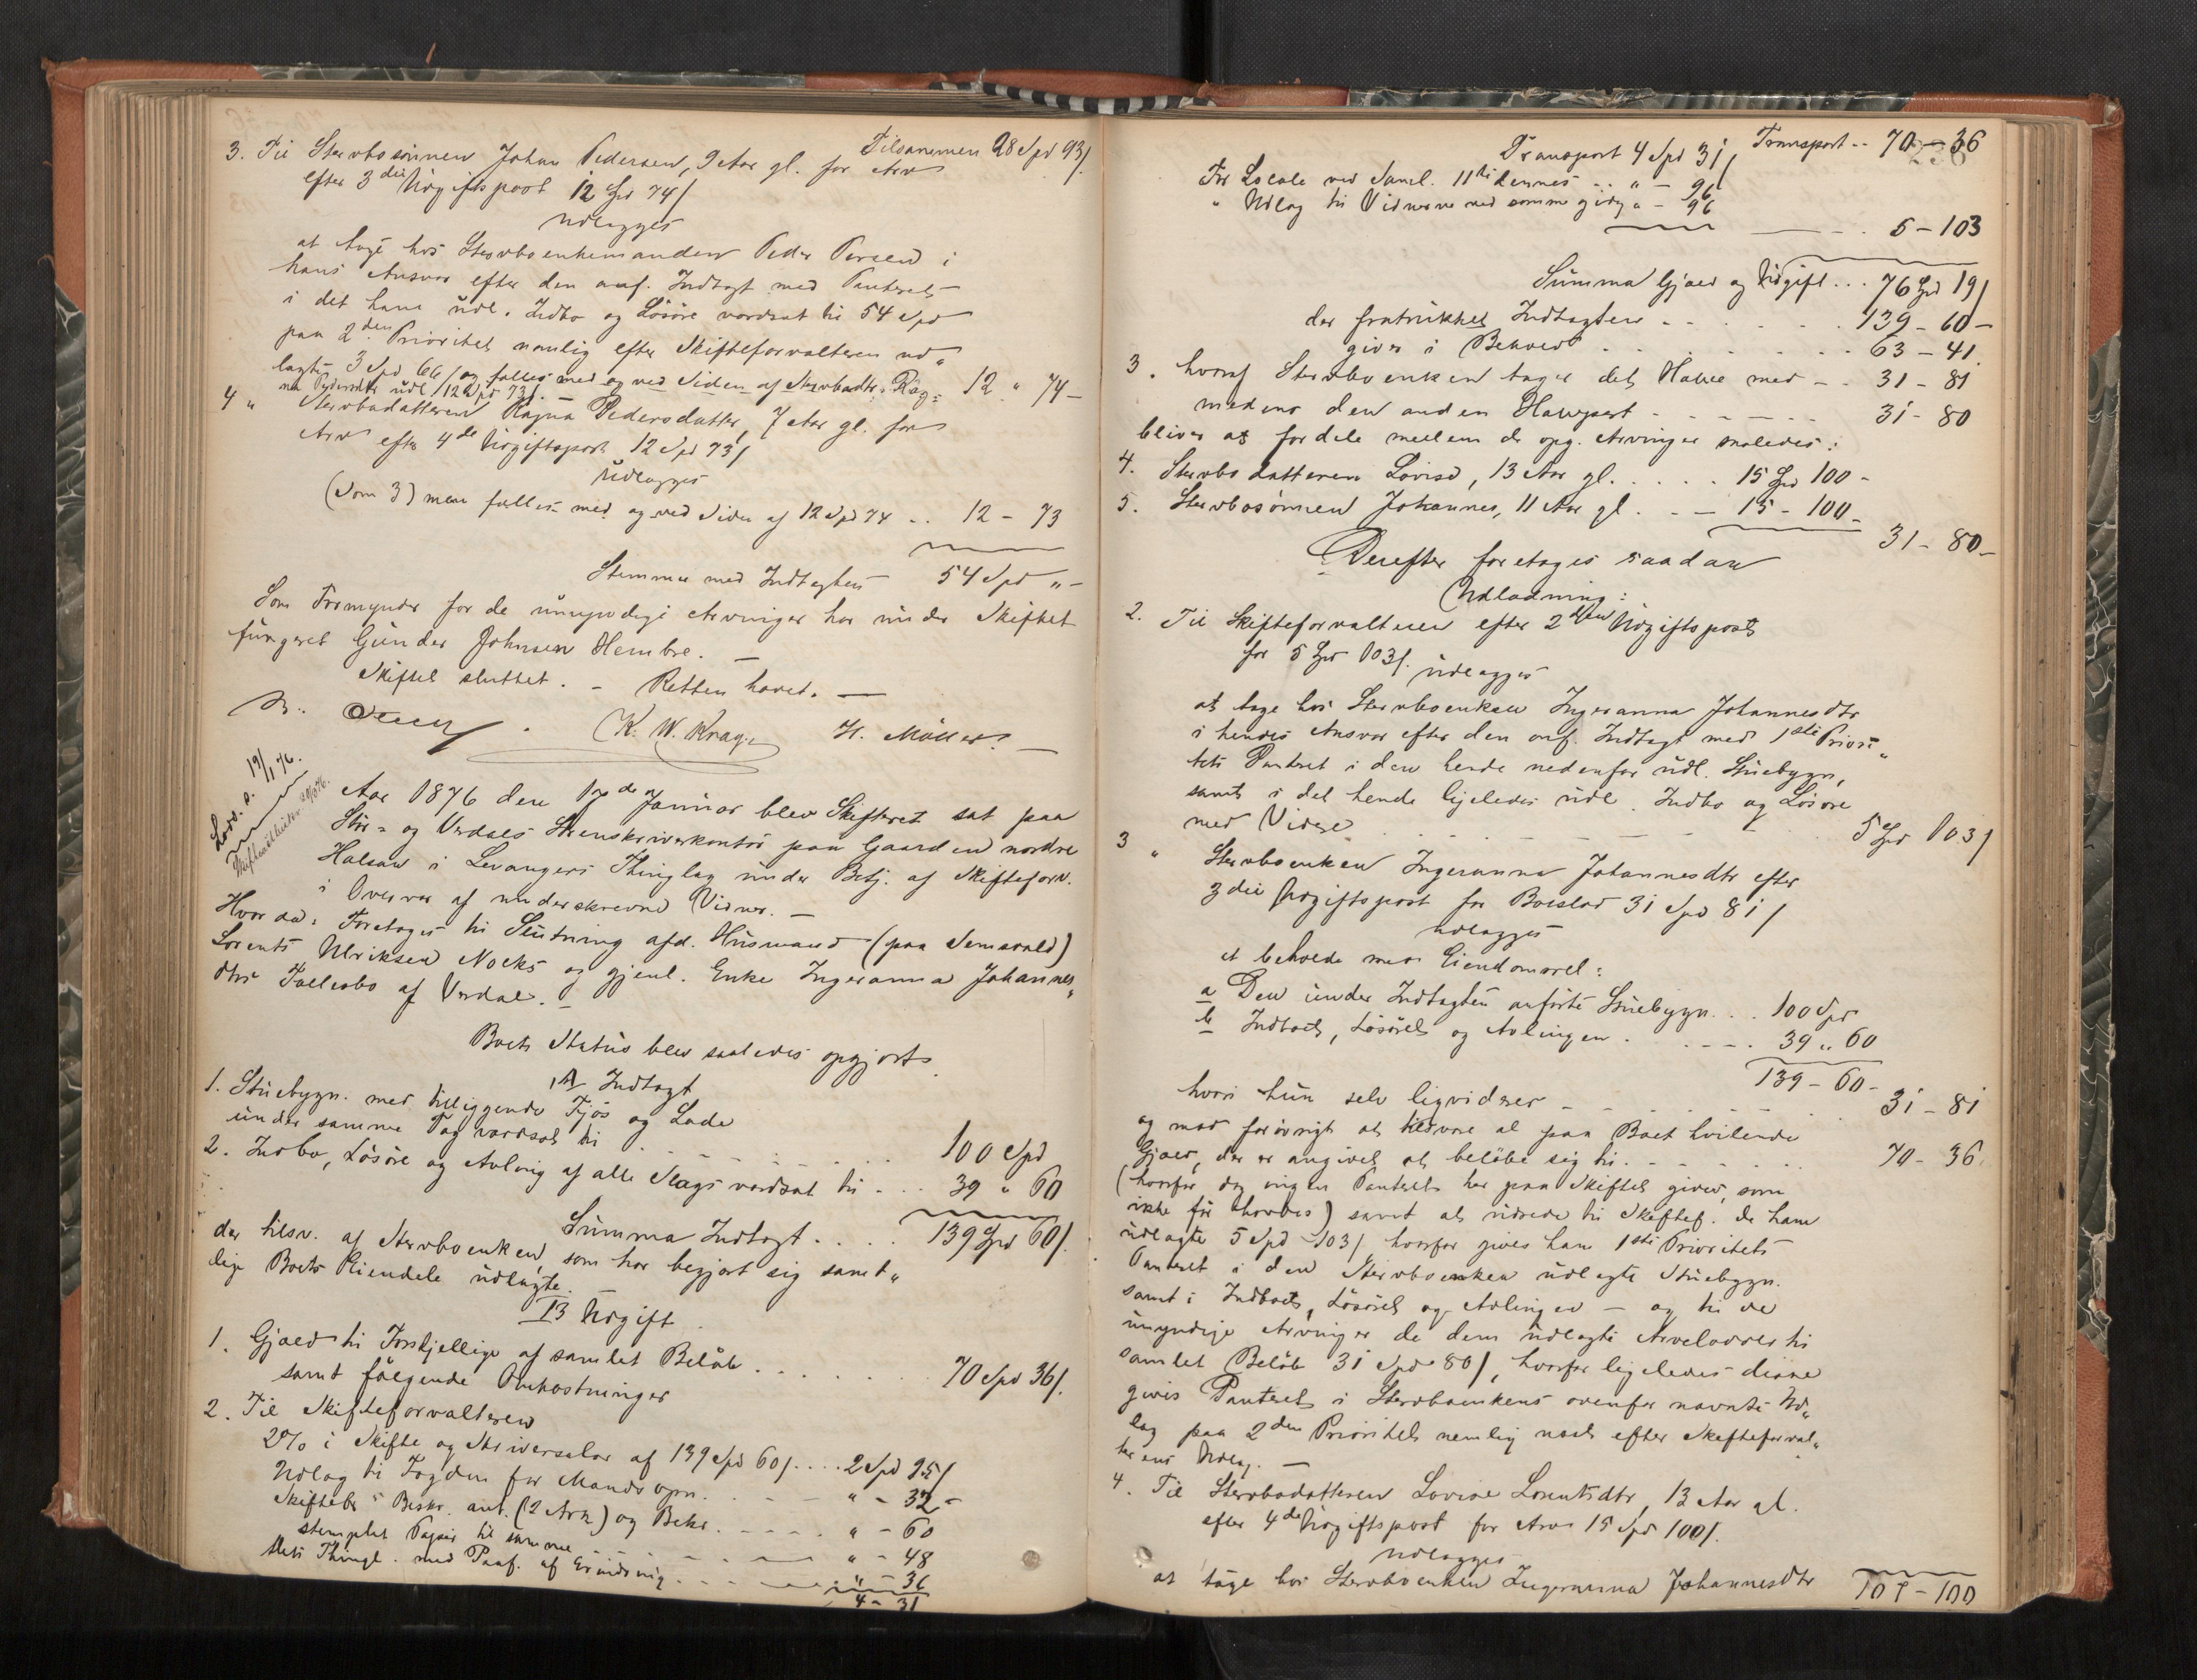 Tilsammen 28 Spd 93/
3. Til Stervbosönnen Johan Pedersen, 9 Aar gl. for Arv
efter 3die Udgiftspost 12 Spd 74/
udlægges
at tage hos Stervboenkemanden Peder Persen i
hans Ansvar efter den anf. Indtægt med Panteret
i det ham udl. Indbo og Lösöre værdsat til 54 Spd
paa 2den Prioritet nemlig efter Skifteforvalteren ud„
lagte 3 Spd 66/ og fælles med og ved Siden af Stervbodtr. Rag=
na Pedersdtr udl. 12 Spd 73/. 12 " 74 -
4 " Stervbodatteren Ragna Pedersdatter, 7 Aar gl. for
Arv efter 4de Udgiftspost 12 Spd 73/
Udlægges
(Som 3) men fælles med og ved Siden af 12 Spd 74 .. 12 - 73
Stemmer med Indtægten 54 Spd " -
Som Formynder for de umyndige Arvinger har under Skiftet
fungeret Gunder Johnsen Hembre. —
Skiftet sluttet. - Retten hævet. —
K. W. Krag. H. Möller. —
19/1 76.
Aar 1876 den 17de Januar blev Skifteret sat paa
Stör- og Værdals Sorenskriverkontor paa Gaarden nordre
Halsan i Levangers Thinglag under Betj. af Skifteforv.
i Overvær af underskrevne Vidner. —
Hvor da: Foretoges til Slutning afd. Husmand (paa Semsvald)
Lorents Ulriksen Nocks og gjenl. Enke Ingeranna Johannes„
dtrs Fællesbo af Værdal. —
Boets Status blev saaledes opgjort.
A Indtægt
1. Stuebygn. med tilliggende Fjös og Lade
under samme Tag værdsat til . . . . 100 Spd
2. Indbo, Lösöre og Avling af alle Slags værdsat til . . . 39 " 60
Summa Indtægt . . . . 139 Spd 60/.
der tilsv. af Stervboenken, som har begjært sig samt„
lige Boets Eiendele udlagte.
B Udgift
1. Gjæld til Forskjellige af samlet Belöb . . . . 70 Spd 36/.
samt fölgende Omkostninger
2. Til Skifteforvalteren
2% i Skifte og Skriversalær af 139 Spd 60/. . . . 2 Spd 95/
Udlæg til Fogden for Mandsopn. . . - " - 32 -
Skiftebr. Beskr. ant. (2 Ark) og Bekr. - - - - " - 60
stemplet Papir til samme - - - " - 48
dets Thingl. med Paaf. af Erindring - - - " - 36
4 - 31
236
Transport 4 Spd 31/ Transport - - 70 - 36
For Locale ved Saml. 11te dennes . . " - 96
" Udlæg til Vidnerne ved samme " - 96
5 - 103
Summa Gjæld og Udgift . . . 76 Spd 19/
der fratrukket Indtægten . . . . 139 - 60 -
giver i Behold . . . . 63 - 41.
3. hvoraf Stervboenken tager det Halve med - - 31 - 81
medens den anden Halvpart - - - - 31 - 80
bliver at fordele mellem de opg. Arvinger saaledes:
4. Stervbodatteren Lovise, 13 Aar gl. . . . . 15 Spd 100 -
5. Stervbosönnen Johannes, 11 Aar gl. . - - 15 - 100 -
31 - 80 -
Derefter foretages saadan
Udlodning:
2. Til Skifteforvalteren efter 2den Udgiftspost
for 5 Spd 103/. udlægges
at tage hos Stervboenken Ingeranna Johannesdtr
i hendes Ansvar efter den anf. Indtægt med 1ste Priori„
tets Panteret i den hende nedenfor udl. Stuebygn,
samt i det hende ligeledes udl. Indbo og Lösöre
med Videre . . . . 5 Spd 103/
3 " Stervboenken Ingeranna Johannesdtr efter
3die Udgiftspost for Boeslod 31 Spd 81/
udlægges
at beholde med Eiendomsret:
a Den under Indtægten anförte Stuebygn. . . 100 Spd
b Indboet, Lösöret og Avlingen . . . . 39 " 60
139 - 60 -
hvori hun selv liqviderer - - - - 31 - 81
og mod forövrigt at tilsvare al paa Boet hvilende
Gjæld, der er angivet at belöbe sig til . . . . 70 - 36.
(hvorfor dog ingen Panteret her paa Skiftet gives, som
ikke for hævdes) samt at udrede til Skiftef. de ham
udlagte 5 Spd 103/ hvorfor gives ham 1ste Prioritets
Panteret i den Stervboenken udlagte Stuebygn.
samt i Indboet, Lösöret og Avlingen — og til de
umyndige Arvinger de dem udlagte Arvelodder til
samlet Belöb 31 Spd 80/, hvorfor ligeledes disse
gives Panteret i Stervboenkens ovenfor nævnte Ud„
læg paa 2den Prioritet nemlig næst efter Skifteforval„
terens Udlæg. —
4. Til Stervbodatteren Lovise Lorentsdtr, 13 Aar gl.
efter 4de Udgiftspost for Arv 15 Spd 100/.
Udlægges
at tage hos Stervboenken Ingeranna Johannesdtr 107 - 100